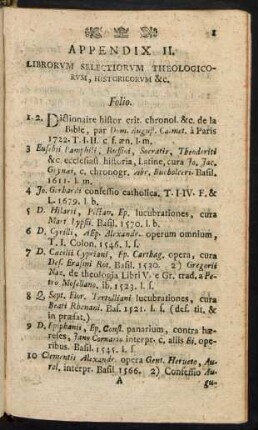 1
APPENDIX II.
LIBRORVM SELECTIORVM THEOLOGICO-
RVM, HISTORICORVM &c.
Folio.
1-2. Dictionaire histor. crit. chronol. &c. de la
Bible, par Dom. August. Calmet. à Paris
1722. T. I-II. c. f. æn. l. m.
3 Eusebii Pamphili, Ruffini, Socratis, Theodoriti
&c. ecclesiast. historia, Latine, cura Jo. Jac.
Grynæi, c. chronogr. Abr. Bucholceri. Basil.
1611. l. m.
4 Jo. Gerhardi confessio catholica. T. I-IV. F. &
L. 1679. l. b.
5 D. Hilarii, Pictav. Ep. lucubrationes, cura
Mart. Lypsii. Basil. 1570. l. b.
6 D. Cyrilli, AEp. Alexandr. operum omnium,
T. I. Colon. 1546. l. s.
7 D. Cæcilii Cypriani, Ep. Carthag. opera, cura
Des. Erasmi Rot. Basil. 1530. 2) Gregorii
Naz. de theologia Libri V. e Gr. trad. a Pe-
tro Mosellano. Ib. 1523. l. s.
8 Q. Sept. Flor. Tertulliani lucubrationes, cura
Beati Rhenani. Bas. 1521. l. s. (des. tit. &
in præfat.)
9 D. Epiphanii, Ep. Const. panarium, contra hæ-
reses, Jano Cornario interpr. c. aliis Ei. ope-
ribus. Basil. 1545. l. s.
10 Clementis Alexandr. opera Gent. Herueto, Au-
rel. interpr. Basil 1566. 2) Confessio Au-
A
gu-